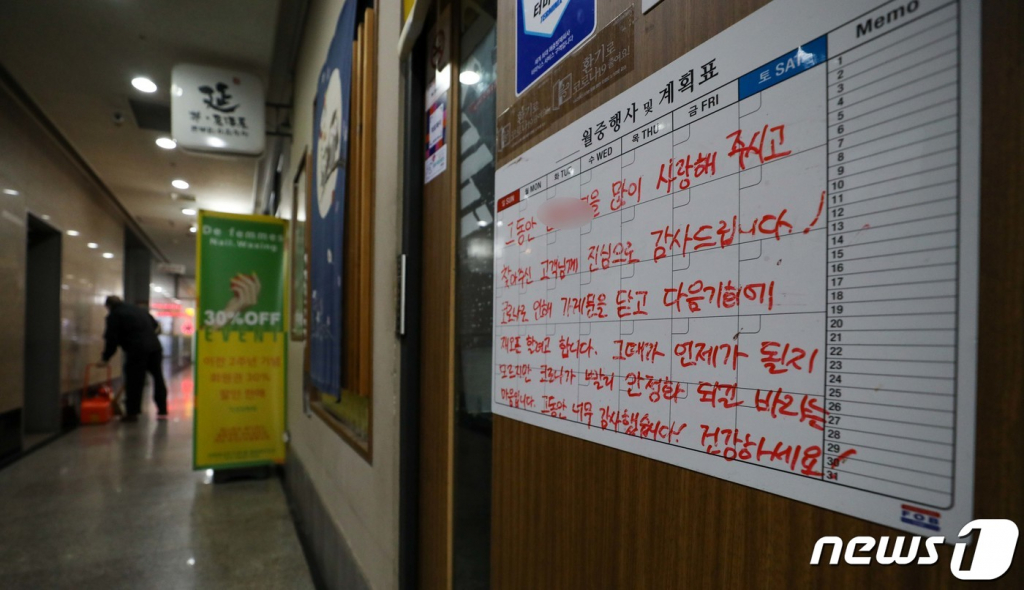 延
De femmes
Nail. Waxing
30%OFF
EVENT
이전 2주년 기념
회원권 30%
할인 판매
월중행사 및 계획표
Memo
SUN
월 MON
화 TUE
수 WED
목 THU
금 FRI
토 SAT
그동안 을 많이 사랑해 주시고
찾아주신 고객님께 진심으로 감사드립니다!
코로나로 인해 가게문을 닫고 다음기회에
재오픈 할려고 합니다. 그때가 언제가 될지
모르지만 코로나가 빨리 안정화 되길 바라는
마음입니다. 그동안 너무 감사했습니다! 건강하세요
1
2
3
4
5
6
7
8
9
10
11
12
13
14
15
16
17
18
19
20
21
22
23
24
25
26
27
28
29
30
31
FOB
news1